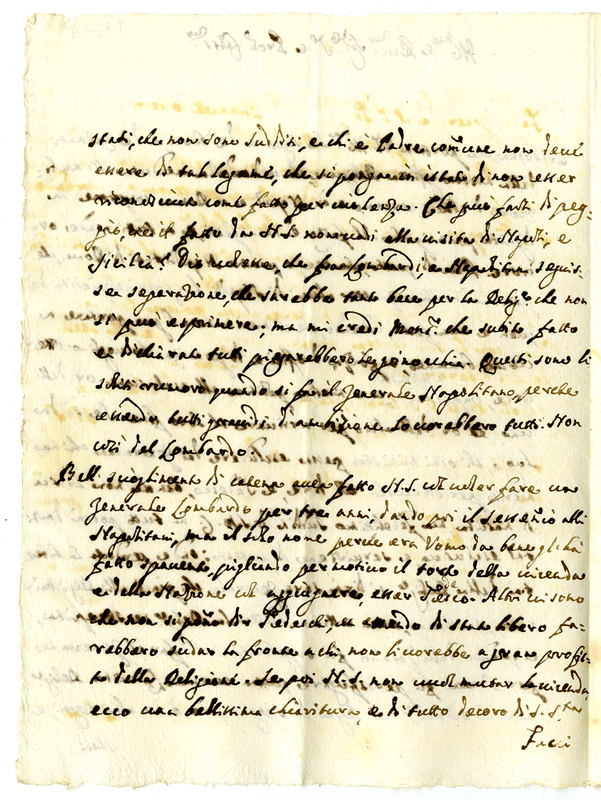 stati, che non sono sudditi, e chi è Padre comune non deve
essere di tal legame, che si ponga in istato di non esser
riconosciuto come fatto per violenza. Che può farsi di peg-
gio, che il fatto da N.S. non vadi alla visita di Napoli, e
Sicilia? Dio volesse, che fra Lombardi, e Napolitani seguis-
se separazione, che sarebbe tanto bene per la Relig.e che non
si può esprimere; ma mi credi Mons.r che subito fatto
e dichiarato tutti piegarebbero le ginocchia. Questi sono li
soliti rumori quando si fa il Generale Napolitano, perche
essendo tutti grandi di ambizione lo vorebbero tutti. Non
così del Lombardo.
Bell. scioglimento di catena avea fatto N.S. col voler fare un
Generale Lombardo per tre anni, dando poi il Sessennio alli
Napolitani, ma il solo nome perche era Uomo da bene gli hà
fatto spavento, pigliando per motivo il torto della vicenda
e della Nazione col aggiugnere, esser Tedesco. Altri vi sono
che non si ponno dir Tedeschi, di stato libero fa-
rebbero sudar la fronte a chi non li vorebbe a gran profit-
to della Religione. Se poi N.S. non vuol mutar la vicenda,
ecco una bellissima chiaritura, e di tutto decoro di S. S.tà
Facci